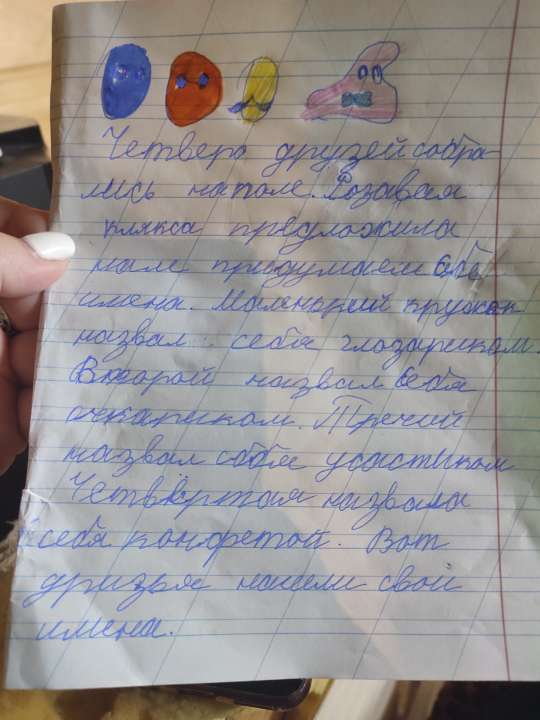 Четверо друзей собра-
лись на поле. Розавая
клякса предложила
нам придумаем себе
имена. Маленький кружок
назвал себя глозариком.
Второй назвал себя
очкариком. Тречий
назвал себя усастиком
Четвёртая назвала
себя конфетой. Вот
дризья нашли свои
имена.